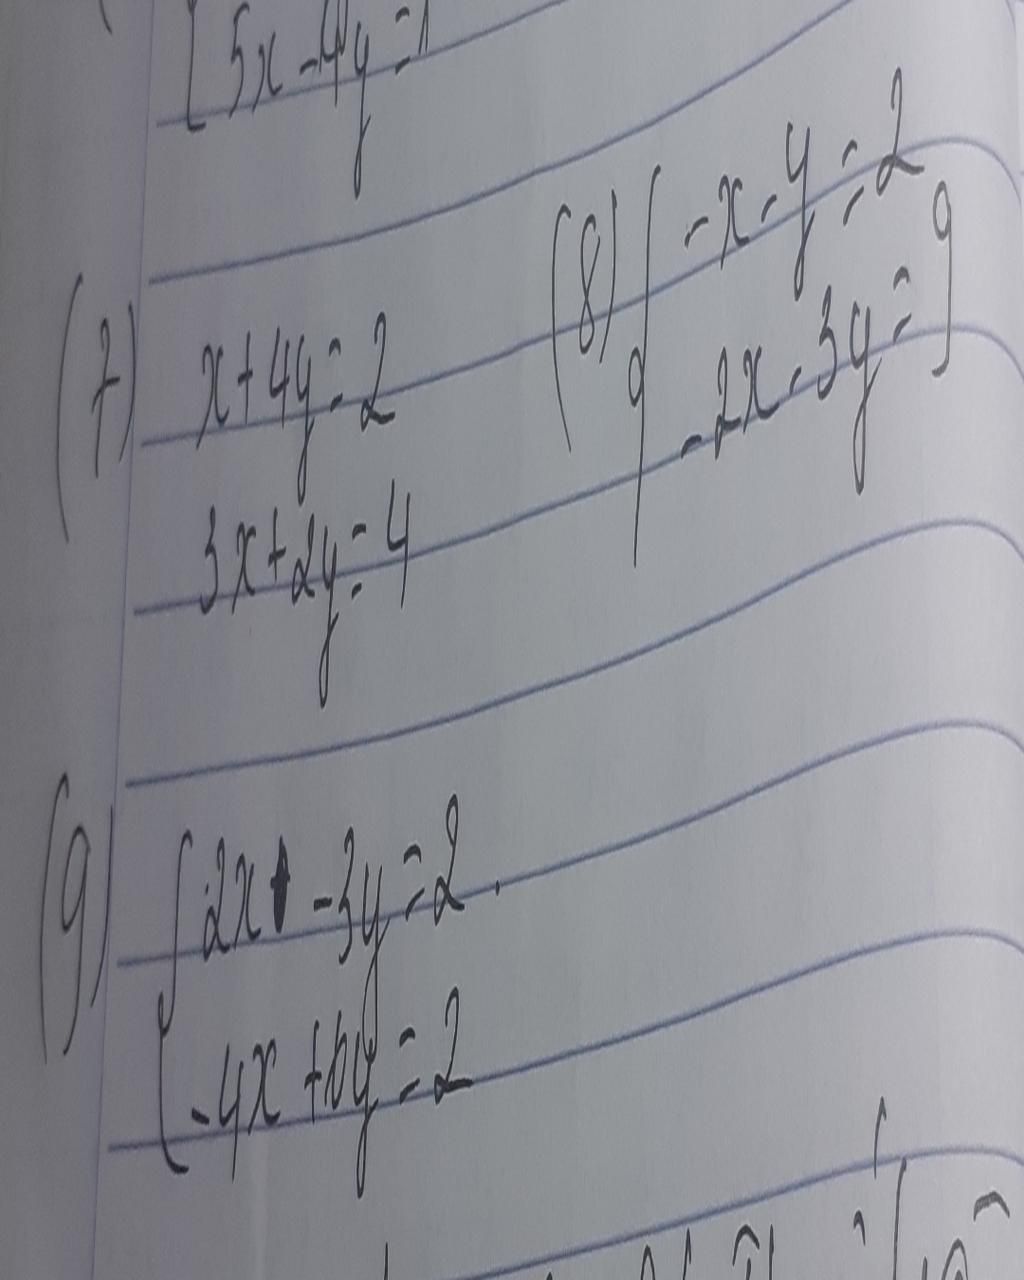 5x - 4y = 1
(7) x + 4y = 2
3x + 2y = 4
(8) { -x - y = 2
-2x - 3y = 9
(9) { 2x - 3y = 2.
-4x + 6y = 2